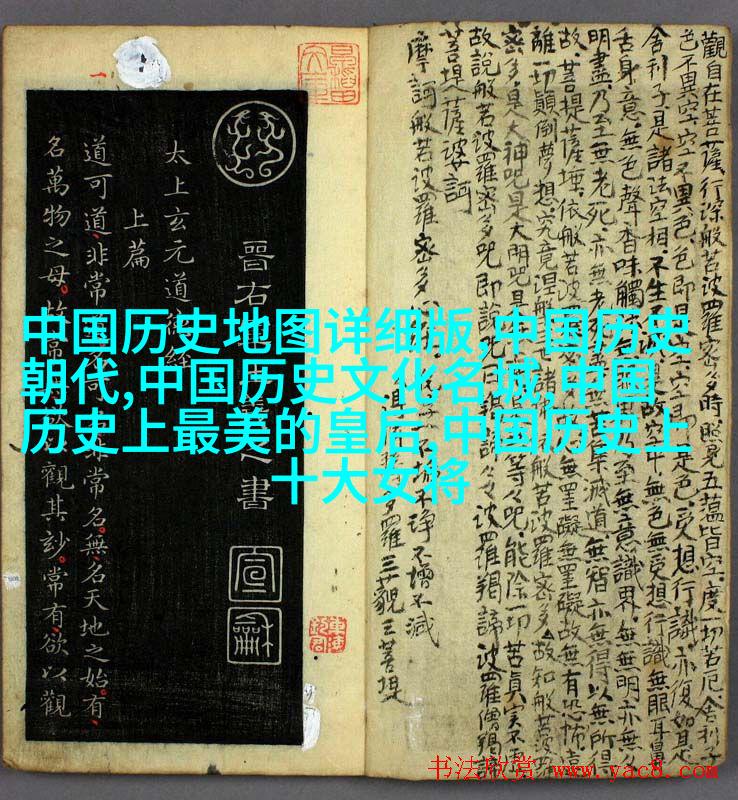 中国历史地图详细版,中国历史
朝代,中国历史文化名城,中国
历史上最美的皇后,中国历史上
十大女将
觀自在菩薩行深般若波羅密多時照見五蘊皆空度一切苦厄舍利子
色不異空空不異色色即是空空即是色受想行識亦復如是
舍利子是諸法空相不生不是故空中無色無受想行識無眼耳鼻
舌身意無色聲香味觸無意識界無無明亦無
明盡乃至無老死亦無老滅道無智亦無得以無所得
故菩提薩埵依般若波羅無罣礙無罣礙故無有恐怖遠
離一切顛倒夢想究竟涅波羅密多故知般若波
密多是大神咒是大明咒是等々咒能除一切苦真實不
故說般若波羅密多咒即說波羅揭諦波羅僧揭諦
菩提薩婆訶
摩訶般若波羅密多
不垢不淨不增不減
多羅三藐三菩提
晉右之書
宣龢
太上玄元道德經
上篇
道可道非常可非常名無名天地之始有
名萬物之母故常觀其妙常有欲以觀
书法欣赏 www.yac8.com